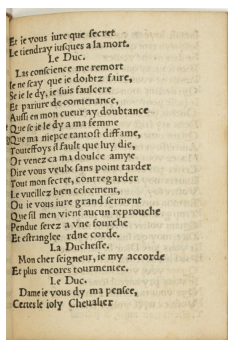 Et ie vous iure que secret
Le tiendray iusques a la mort.
Le Duc.
Las conscience me remort
Ie ne scay que ie doibtz faire,
Se ie le dy, ie suis faulcere
Et pariure de conuenance,
Aussi en mon cueur ay doubtance
Que se ie le dy a ma femme
Que ma niepce tantost diffame,
Touteffoys il fault que luy die,
Or venez ca ma doulce amye
Dire vous veulx sans point tarder
Tout mon secret, contregarder
Le vueillez bien celeement,
Ou ie vous iure grand serment
Que sil men vient aucun reprouche
Pendue serez a vne fourche
Et estranglee dne corde.
La Duchesse.
Mon cher seigneur, ie my accorde
Et plus encores tourmentee.
Le Duc.
Dame ie vous dy ma pensee,
Certes le ioly Cheualier